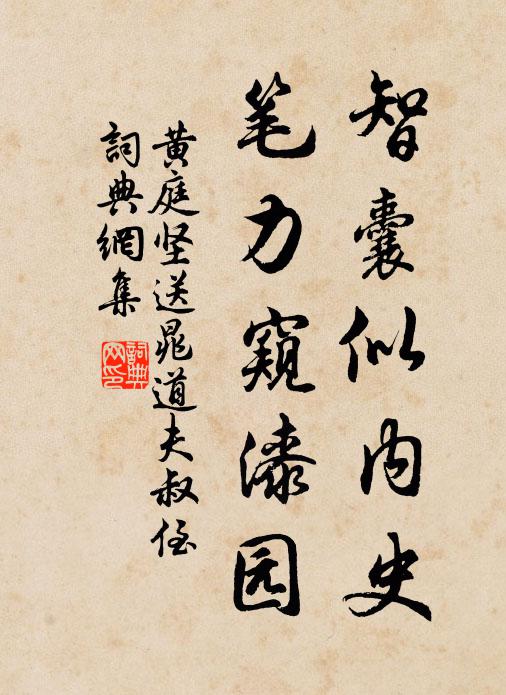 智囊似内史
笔力窥漆园
黄庭坚送晁道夫叔侄
词典網集
詞典網印